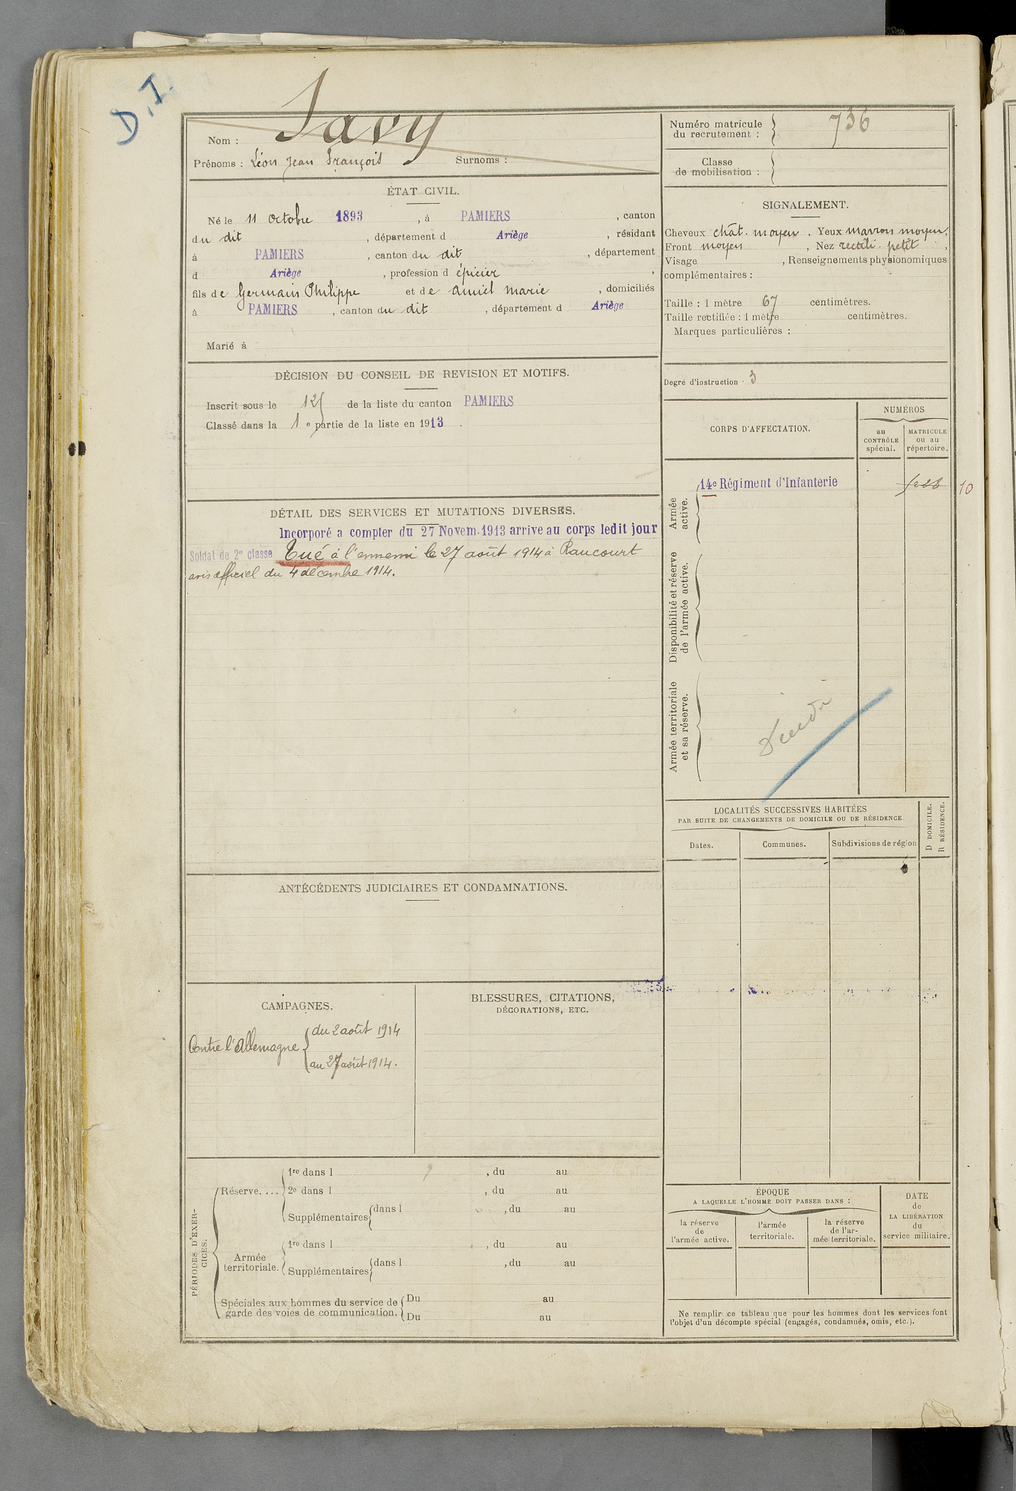 D.I.
Nom : Savy
Prénoms : Léon Jean François Surnoms :
Numéro matricule
du recrutement : 736
Classe
de mobilisation :
ÉTAT CIVIL.
Né le 11 octobre 1893, à PAMIERS, canton
du dit, département d Ariège, résidant
à PAMIERS, canton du dit, département
d Ariège, profession d épicier,
fils de Germain Philippe et de Amiel Marie, domiciliés
à PAMIERS, canton du dit, département d Ariège
Marié à
SIGNALEMENT.
Cheveux chat. moyen. Yeux marron moyen.
Front moyen, Nez rectili. petit,
Visage , Renseignements physionomiques
complémentaires :
Taille : 1 mètre 67 centimètres.
Taille rectifiée : 1 mètre centimètres.
Marques particulières :
Degré d'instruction : 3
DÉCISION DU CONSEIL DE REVISION ET MOTIFS.
Inscrit sous le de la liste du canton PAMIERS
Classé dans la 1e partie de la liste en 1913.
DÉTAIL DES SERVICES ET MUTATIONS DIVERSES.
Incorporé a compter du 27 Novem. 1913 arrive au corps ledit jour
Soldat de 2e classe Tué à l'ennemi le 27 août 1914 à Raucourt
avis officiel du 4 décembre 1914.
CORPS D'AFFECTATION.
NUMÉROS
au
CONTRÔLE
spécial.
MATRICULE
ou au
répertoire.
Armée
active.
14e Régiment d'Infanterie
10
Disponibilité et réserve
de l'armée active.
Armée territoriale
et sa réserve.
LOCALITÉS SUCCESSIVES HABITÉES
PAR SUITE DE CHANGEMENTS DE DOMICILE OU DE RÉSIDENCE
Dates.
Communes.
Subdivisions de région
D DOMICILE.
R RÉSIDENCE.
ANTÉCÉDENTS JUDICIAIRES ET CONDAMNATIONS.
CAMPAGNES.
Contre l'Allemagne
du 2 août 1914
au 27 août 1914.
BLESSURES, CITATIONS,
DÉCORATIONS, ETC.
PÉRIODES D'EXER-
CICES.
Réserve. ...
1re dans l , du au
2e dans l , du au
Supplémentaires dans l , du au
Armée
territoriale.
1re dans l , du au
Supplémentaires dans l , du au
Spéciales aux hommes du service de
garde des voies de communication.
Du au
Du au
ÉPOQUE
A LAQUELLE L'HOMME DOIT PASSER DANS :
la réserve
de
l'armée active.
l'armée
territoriale.
la réserve
de l'ar-
mée territoriale.
DATE
de
LA LIBÉRATION
du
service militaire.
Ne remplir ce tableau que pour les hommes dont les services font
l'objet d'un décompte spécial (engagés, condamnés, omis, etc.).